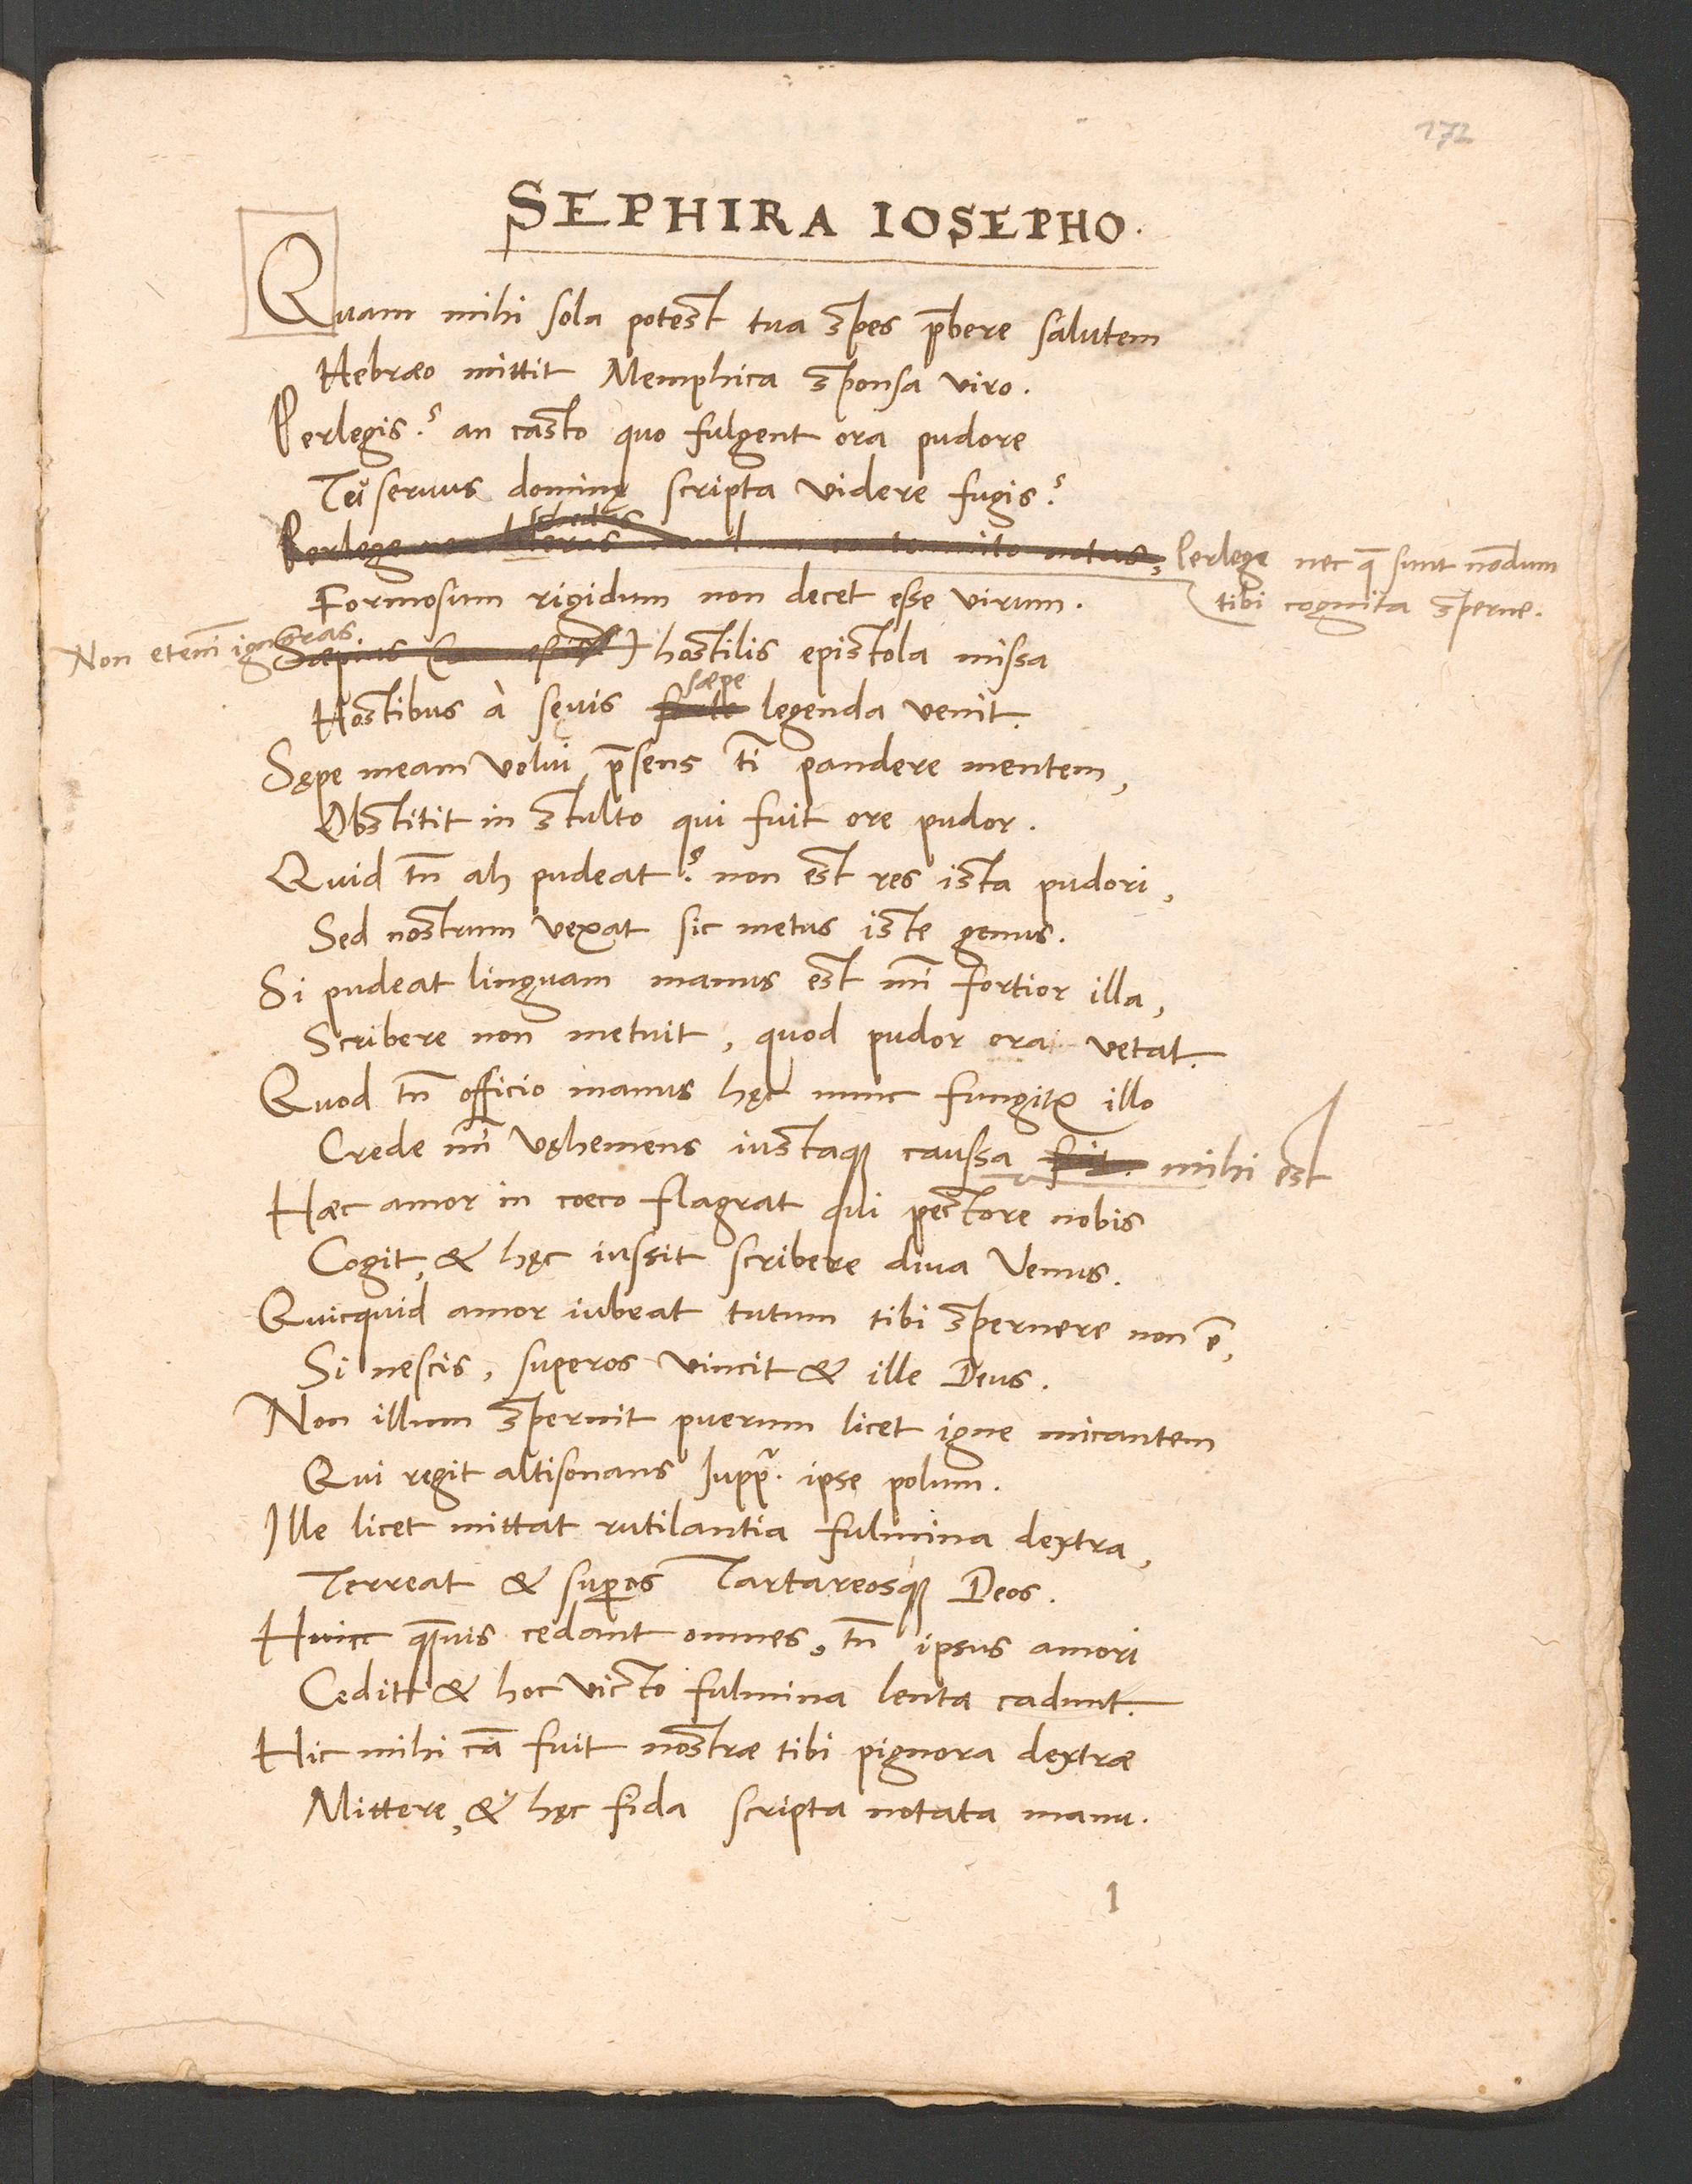 172
SEPHIRA IOSEPHO.
Quam mihi sola potest tua spes p̄bere salutem
Hebræo mittit Memphica sponsa viro.
Perlegis? an casto quo fulgent ora pudore
Tu seruus dominę scripta videre fugis?
schedas
Perlege nec literas nondum contemnito notas, Perlege nec q̄ sunt nōdum
Formosum rigidum non decet esse virum. tibi cognita sperne.
Non etem̄ ignoras
Sæpius hostilis epistola missa
sæpe
Hostibus à sęuis legenda venit.
Sępe meam volui p̄sens tī pandere mentem,
Obstitit in stulto qui fuit ore pudor.
Quid tn̄ ah pudeat? non est res ista pudori,
Sed nostrum vexat sic metus iste genus.
Si pudeat linguam manus est mī fortior illa,
Scribere non metuit, quod pudor ora vetat.
Quod tn̄ officio manus hęc nunc fungitꝛ illo
Crede mī vęhemens iustaqꝫ caussa fuit. mihi est
Hæc amor in cœco flagrat qui pectore nobis
Cogit, & hęc iussit scribere diua Venus.
Quicquid amor iubeat tutum tibi spernere non ē,
Si nescis, superos vincit & ille Deus.
Non illum spernit puerum licet igne micantem
Qui regit altisonans Jupp̄. ipse polum.
Ille licet mittat rutilantia fulmina dextra,
Terreat & suꝑos Tartareosqꝫ Deos.
Huic q̄uis cedant omnes, tn̄ ipsus amori
Cedit & hoc victo fulmina lenta cadunt.
Hic mihi cā fuit nostræ tibi pignora dextræ
Mittere, & hęc fida scripta notata manu.
1